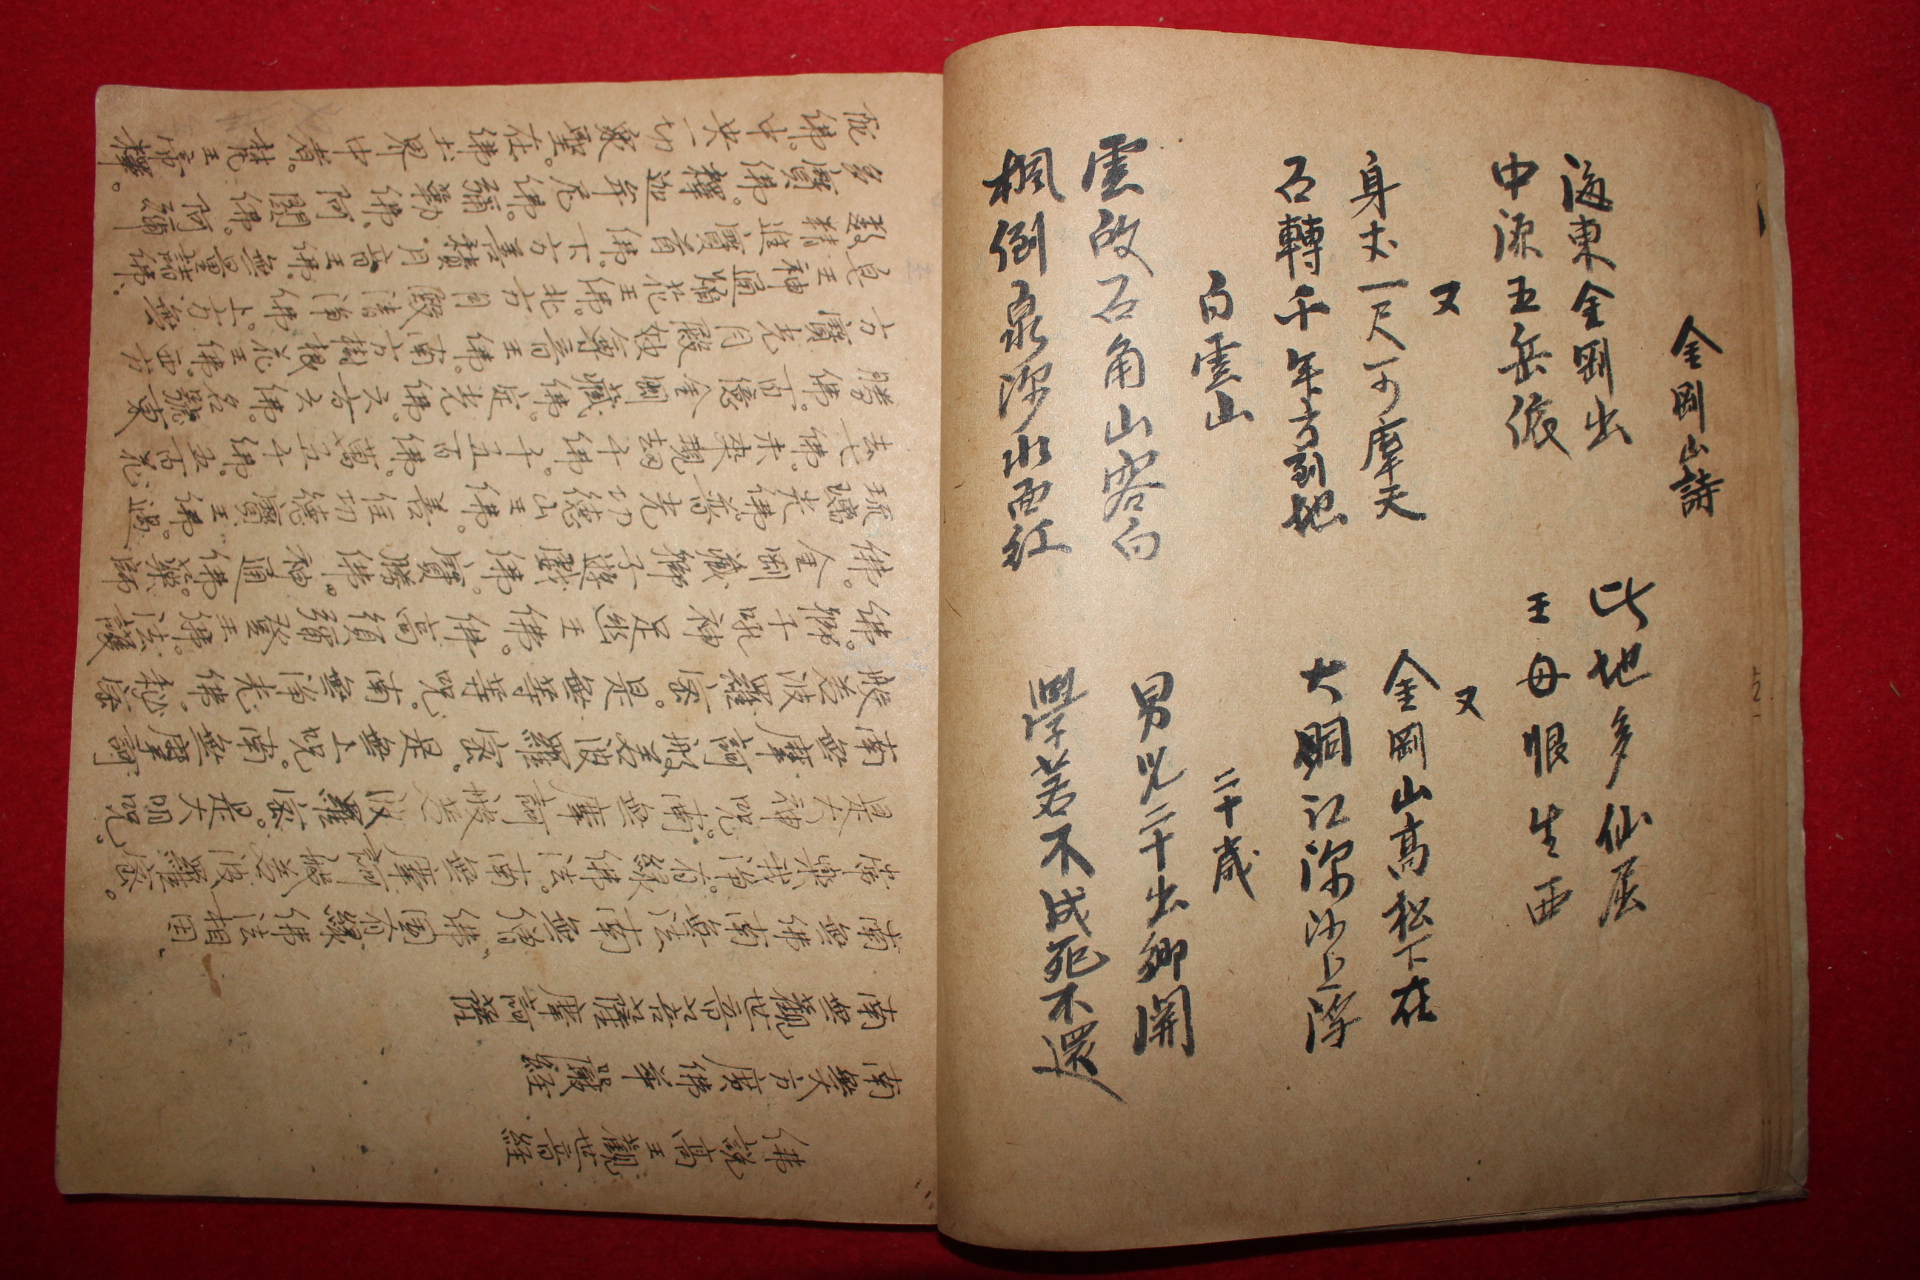 金剛山詩
海東金剛出 此地多仙居
中源五岳低 王母恨生西
又 又
身丈一尺可摩天 金剛山高松下在
石轉千年方到地 大洞江深沙上浮
白雲山 二十歲
雲改石角山容白 男兒二十出鄉關
楓倒泉深水西紅 學若不成死不還
佛說高王觀世音経
南無大方廣佛華嚴経
南無觀世音菩薩摩訶薩
南無佛南無法南無僧佛國有緣佛法相因
常樂我淨有緣佛法。南無摩訶般若波羅蜜。
是大神呪。南無摩訶般若波羅蜜。是大明呪。
南無摩訶般若波羅蜜。是無上呪。南無摩訶
般若波羅蜜。是無等等呪。南無淨光佛。秘密
佛。獅子吼神足幽王佛。高須彌登王佛。法護
佛。金剛藏獅子遊戲佛。寶勝佛。神通佛。藥師
琉璃光佛。普光功德山王佛。善住功德寶王佛。過
去七佛。未來賢劫千佛。千五百佛。萬五千佛。五百花
勝佛。百億金剛藏佛。定光佛。六方六佛名號。東
方寶光月殿妙尊音王佛。南方樹根花王佛。西方
皂王神通燄花王佛。北方月殿清淨佛。上方無
數精進寶首佛。下方善寂月音王佛。無量諸佛。
多寶佛。釋迦牟尼佛。彌勒佛。阿閦佛。阿彌
陀佛。中央一切衆聖在佛土界中者。梵王帝釋。